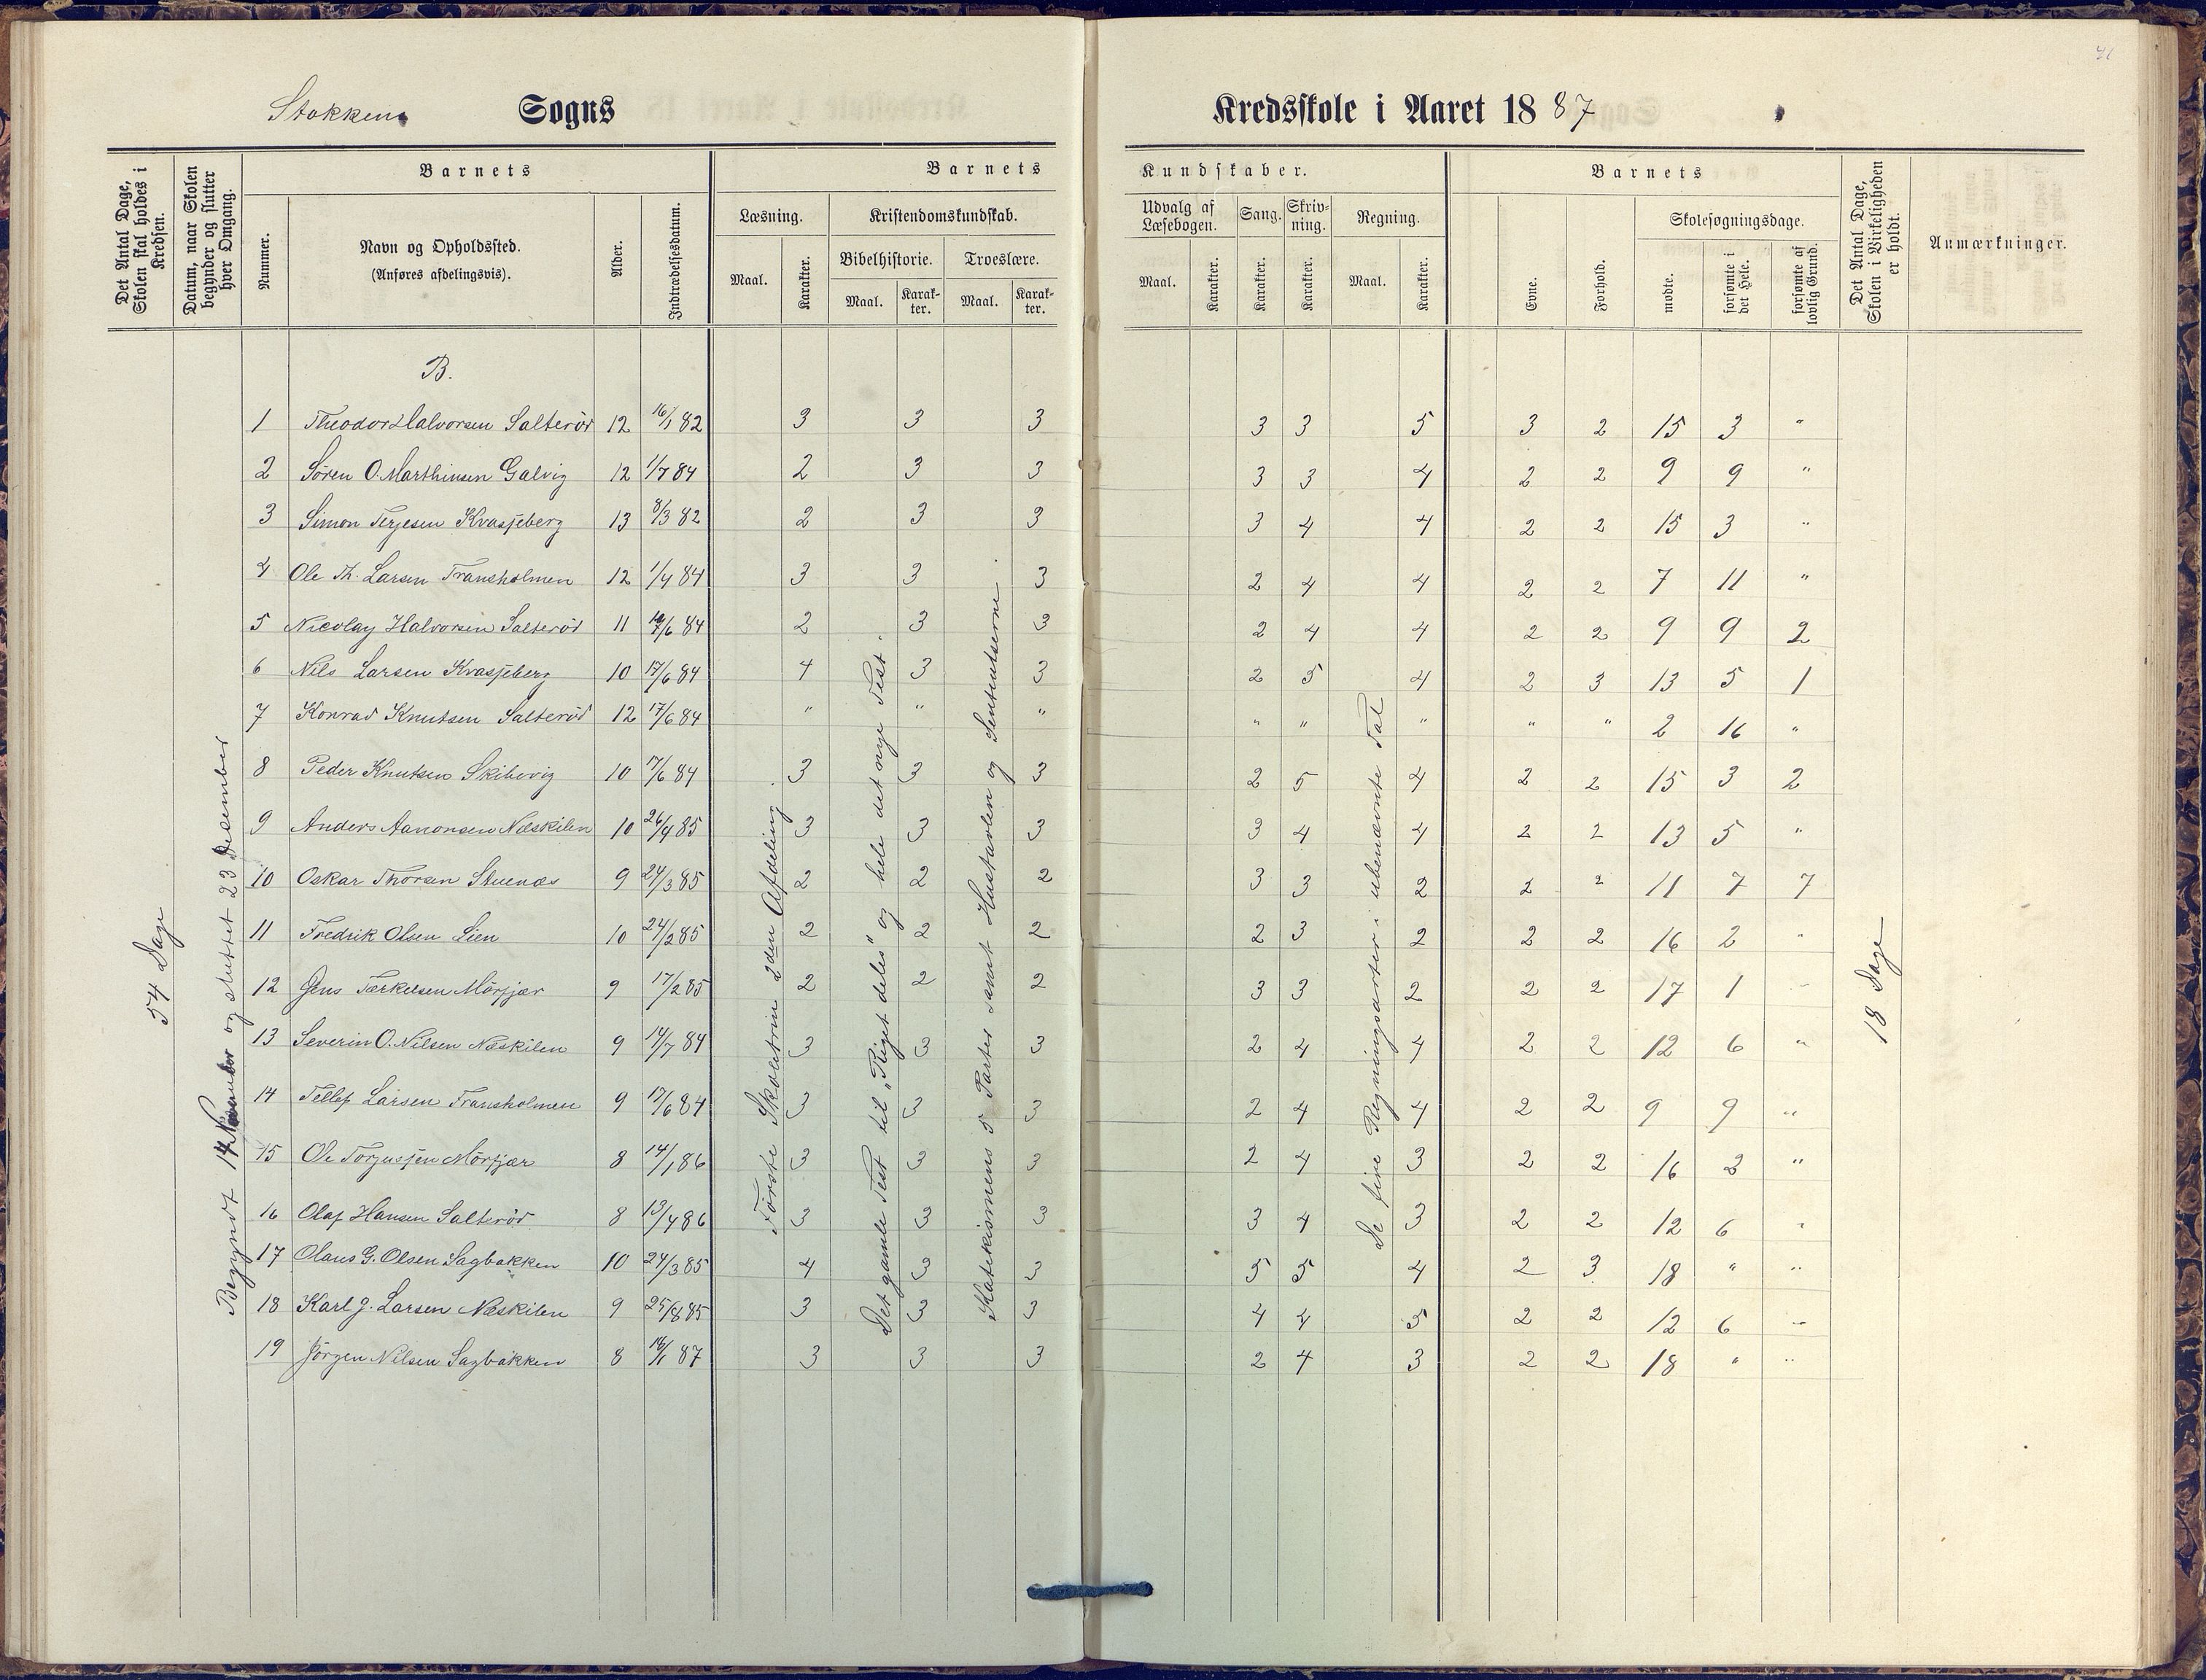 71
Stokken Sogns Kredsskole i Aaret 1887
Det Antal Dage, Skolen skal holdes i Kredsen.
Datum, naar Skolen begynder og slutter hver Omgang.
Barnets
Nummer.
Navn og Opholdssted.
(Anføres afdelingsvis).
Alder.
Indtrædelsesdatum.
Barnets Kundskaber.
Læsning.
Maal.
Karakter.
Kristendomskundskab.
Bibelhistorie.
Maal.
Karakter.
Troeslære.
Maal.
Karakter.
Udvalg af Læsebogen.
Maal.
Karakter.
Sang.
Karakter.
Skrivning.
Karakter.
Regning.
Maal.
Karakter.
Barnets
Evne.
Forhold.
Skolesøgningsdage.
mødte.
forsømte i det Hele.
forsømte af lovlig Grund.
Det Antal Dage, Skolen i Virkeligheden er holdt.
Anmærkninger.
54 Dage
Begyndt 14 November og sluttet 23 Desember
Første Skoletrin 2den Afdeling.
Det gamle Test til "Riget deles" og hele det nye Test.
Katekismens 5 Parter samt Hustavlen og Sententserne.
De fire Regningsarter i ubenævnte Tal
18 Dage
B.
1 Theodor Halvorsen Salterød 12 16/1 82 3 3 3 3 3 5 3 2 15 3 "
2 Søren O. Marthinsen Galvig 12 1/7 84 2 3 3 3 3 4 2 2 9 9 "
3 Simon Terjesen Kvasjeberg 13 8/3 82 2 3 3 3 4 4 2 2 15 3 "
4 Ole Th. Larsen Fransholmen 12 1/4 84 3 3 3 2 4 4 2 2 7 11 "
5 Nicolay Halvorsen Salterød 11 /6 84 2 3 3 2 4 4 2 2 9 9 2
6 Nils Larsen Kvasjeberg 10 17/6 84 4 3 3 2 5 4 2 3 13 5 1
7 Konrad Knutsen Salterød 12 17/6 84 " " " " " " " " 2 16 "
8 Peder Knutsen Skibevig 10 17/6 84 3 3 3 2 5 4 2 2 15 3 2
9 Anders Aanonsen Næskilen 10 26/4 85 3 3 3 3 4 4 2 2 13 5 "
10 Oskar Thorsen Stuenæs 9 24/3 85 2 2 2 3 3 2 2 2 11 7 7
11 Fredrik Olsen Lien 10 24/2 85 2 2 2 2 3 2 2 2 16 2 "
12 Jens Tærkelsen Mörfjær 9 17/2 85 2 2 2 3 3 2 2 2 17 1 "
13 Severin O. Nilsen Næskilen 9 14/7 84 3 3 3 2 4 4 2 2 12 6 "
14 Tellef Larsen Fransholmen 9 17/6 84 3 3 3 2 4 4 2 2 9 9 "
15 Ole Torjussen Mörfjær 8 14/1 86 3 3 3 2 4 3 2 2 16 2 "
16 Olaf Hansen Salterød 8 13/4 86 3 3 3 3 4 3 2 2 12 6 "
17 Olaus G. Olsen Sagbakken 10 24/3 85 4 3 3 5 5 4 2 3 18 " "
18 Karl J. Larsen Næskilen 9 25/8 85 3 3 3 4 4 5 2 2 12 6 "
19 Jörgen Nilsen Sagbakken 8 14/1 87 3 3 3 2 4 3 2 2 18 " "